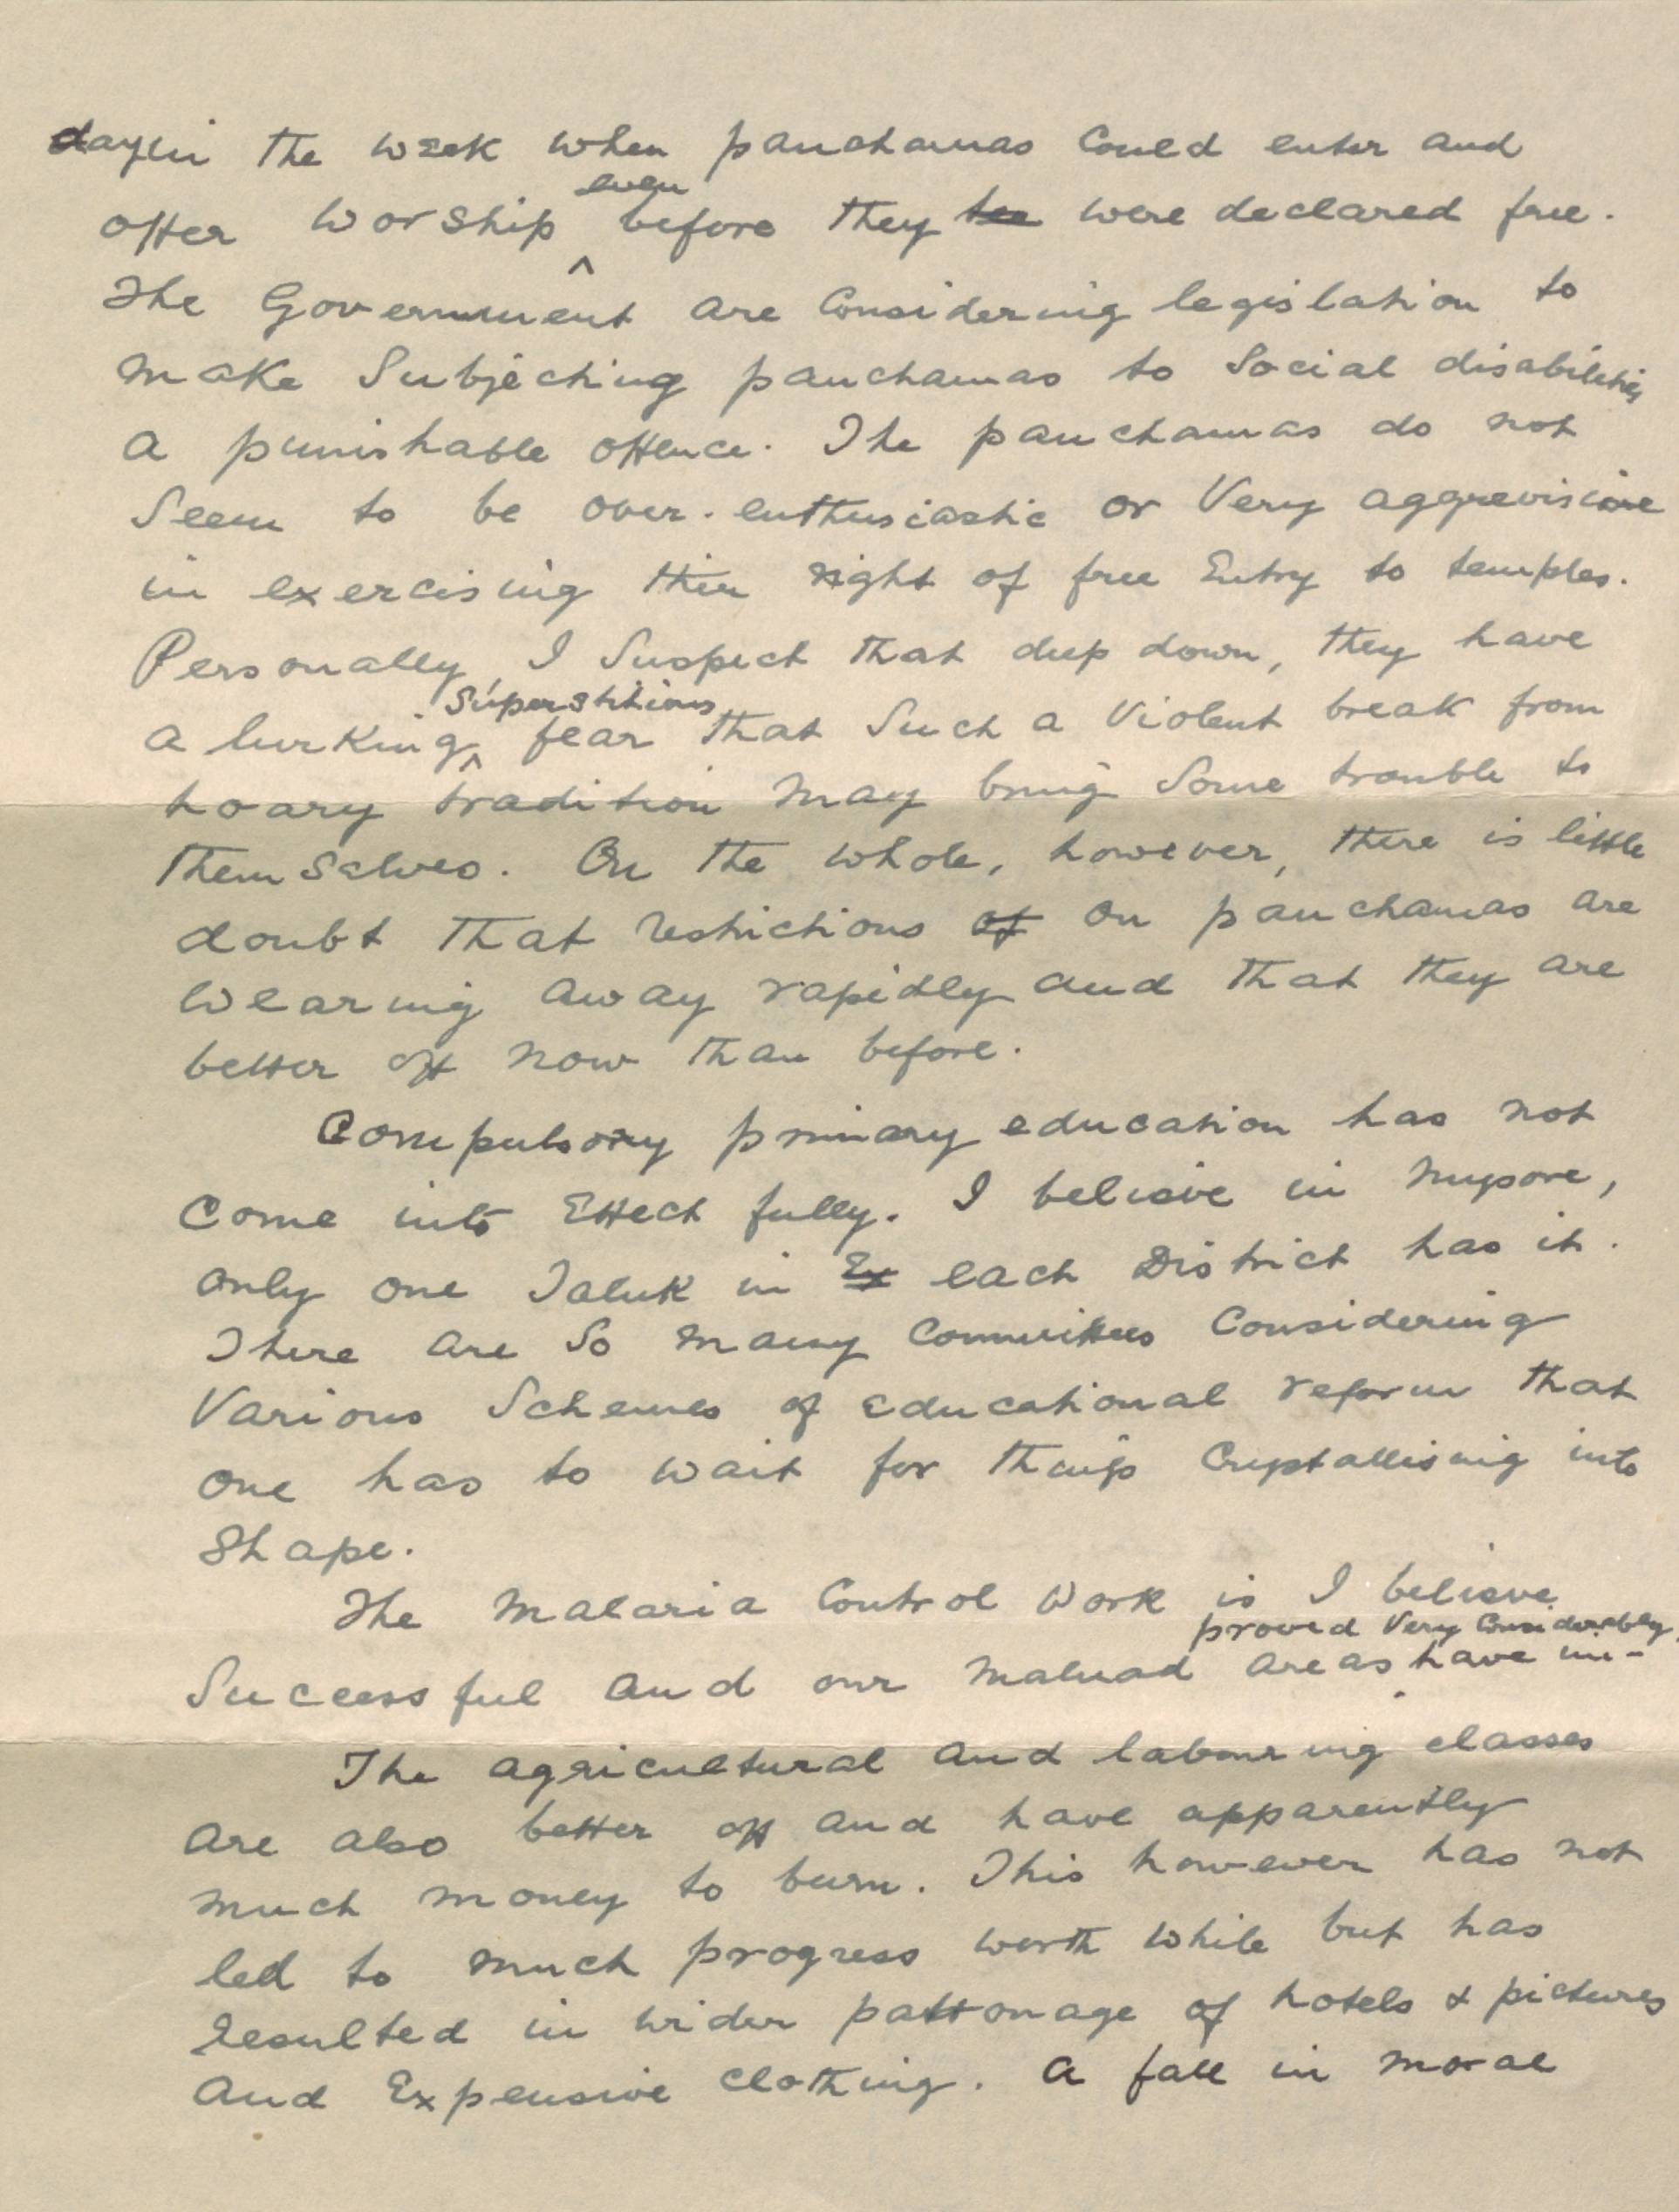 day in the week when panchamas could enter and
offer worship even before they were declared free.
The Government are considering legislation to
make subjecting panchamas to social disabilities
a punishable offence. The panchamas do not
seem to be over-enthusiastic or very aggrevisive
in exercising thier right of free entry to temples.
Personally, I suspect that deep down, they have
a lurking superstitious fear that such a violent break from
hoary tradition may bring some trouble to
themselves. On the whole, however, there is little
doubt that restrictions of on panchamas are
wearing away rapidly and that they are
better off now than before.
Compulsory primary education has not
come into effect fully. I believe in Mysore,
only one Taluk in Ex each District has it.
There are so many committees considering
various schemes of educational reform that
one has to wait for things crystallising into
shape.
The Malaria Control Work is I believe
successful and our Malnad areas have im-
proved very considerably.
The agricultural and labouring classes
are also better off and have apparently
much money to burn. This however has not
led to much progress worth while but has
resulted in wider pattonage of hotels & pictures
and expensive clothing. A fall in moral